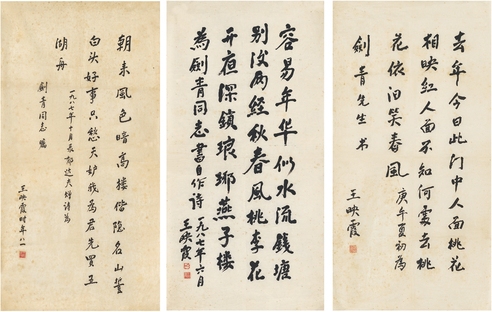 去年今日此门中人面桃花
相映红人面不知何處去桃
花依旧笑春風 庚午夏初為
劍青先生 书
王映霞
容易年华似水流錢塘
别後两经秋春風桃李花
开夜深鎖琅琊燕子樓
為劍青同志書自作诗 一九八七年六月
王映霞
朝来風色暗高楼偕隐名山誓
白头好事只愁天妒我為君先買五
湖舟
一九八七年十月录郁达夫赠诗為
劍青同志 嘱
王映霞时年八一